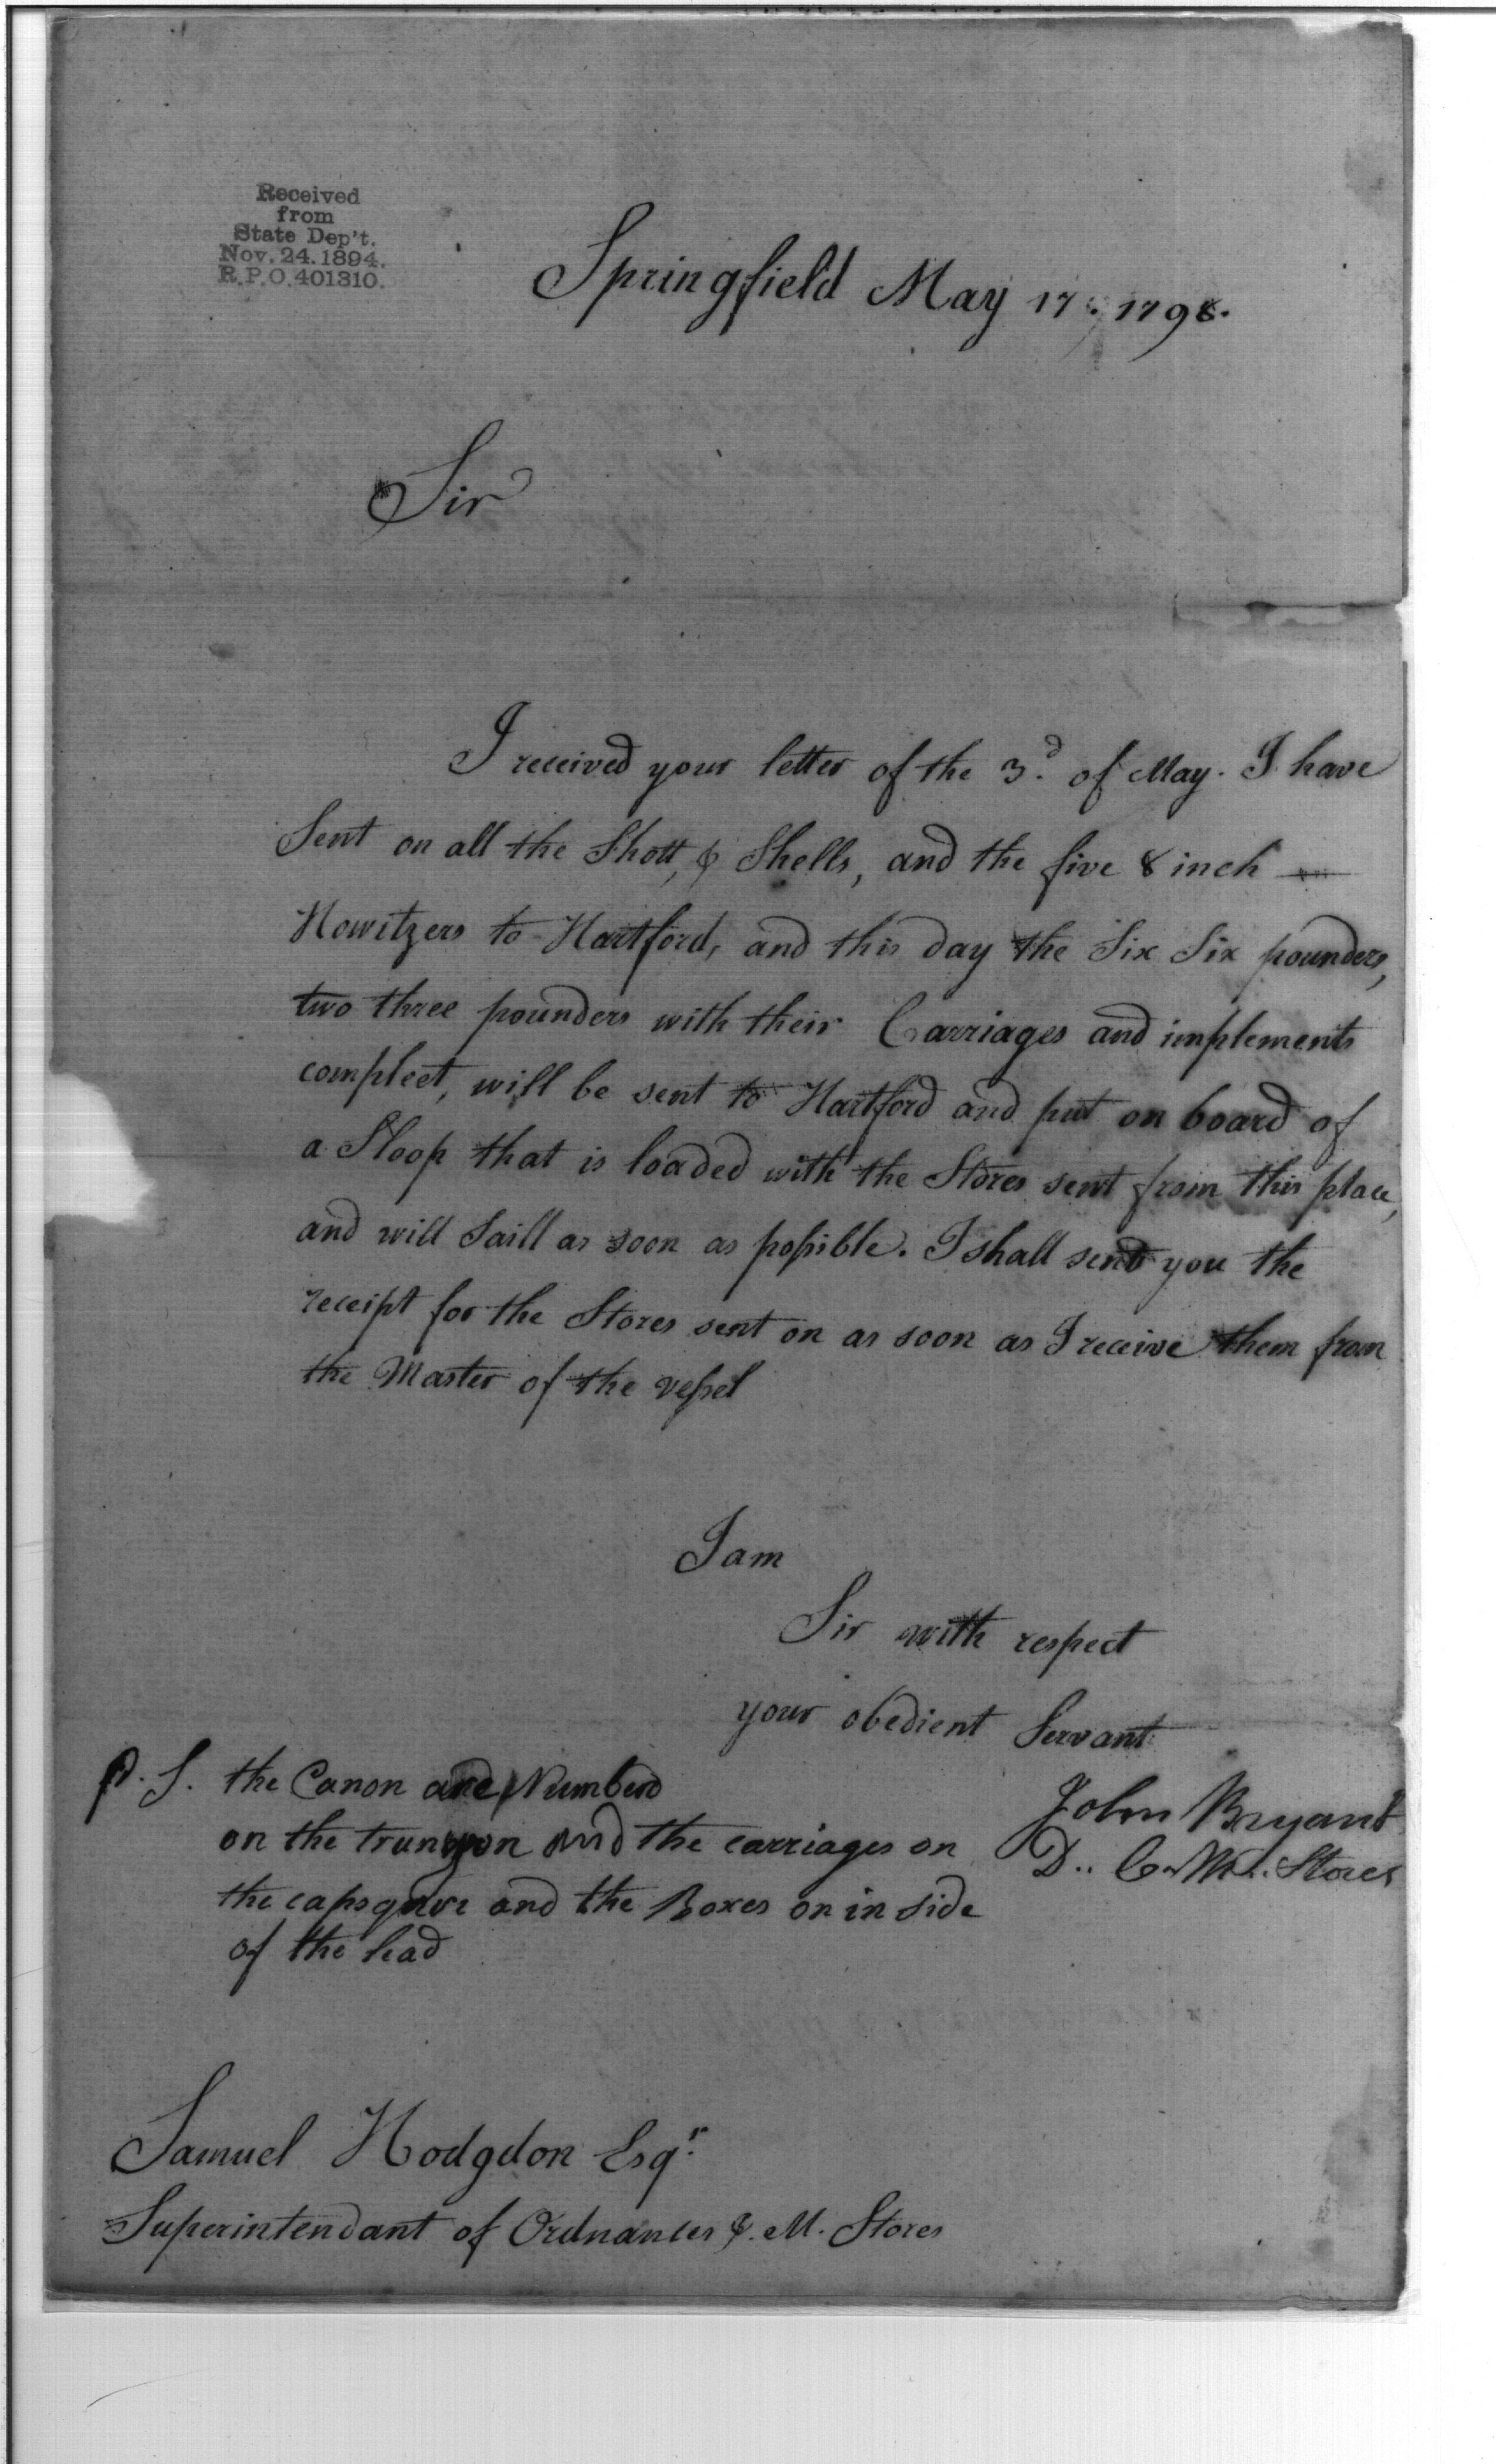 Received
from
State Dep't.
Nov. 24. 1894.
R.P.O. 401310.
Springfield May 17. 1798.
Sir
I received your letter of the 3.d of May. I have
Sent on all the Shott, & Shells, and the five 8 inch
Howitzers to Hartford, and this day the Six Six pounders,
two three pounders with their Carriages and implements
compleet, will be sent to Hartford and put on board of
a Sloop that is loaded with the Stores sent from this place,
and will Saill as soon as possible. I shall send you the
receipt for the Stores sent on as soon as I receive them from
the Master of the vessel
I am
Sir with respect
your obedient Servant
John Bryant
D.. C. M.. Stores
P. S. the Canon are Numberd
on the trunyon and the carriages on
the and the Boxes on in side
of the lead
Samuel Hodgdon Esqr.
Superintendant of Ordnances &. M. Stores